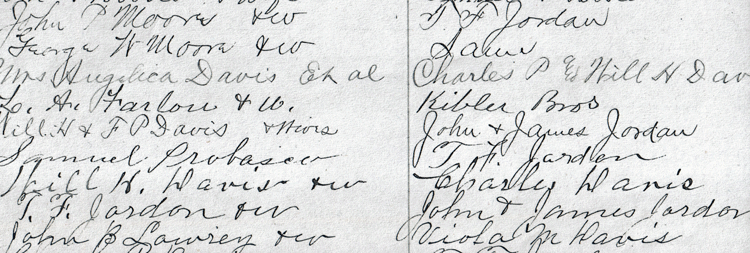 John P Moore & w
T. F. Jordan
George W Moore & w
Same
Mrs Angelica Davis Et al
Charles P & Will H Dav
L. A. Farlow & w.
Kibler Bros
Will H & F P Davis & Wives
John & James Jordan
Samuel Probasco
T. F. Jardon
Will H. Davis & w
Charley Davis
T. F. Jordon & w
John & James Jordon
John B Lowrey & w
Viola M Davis